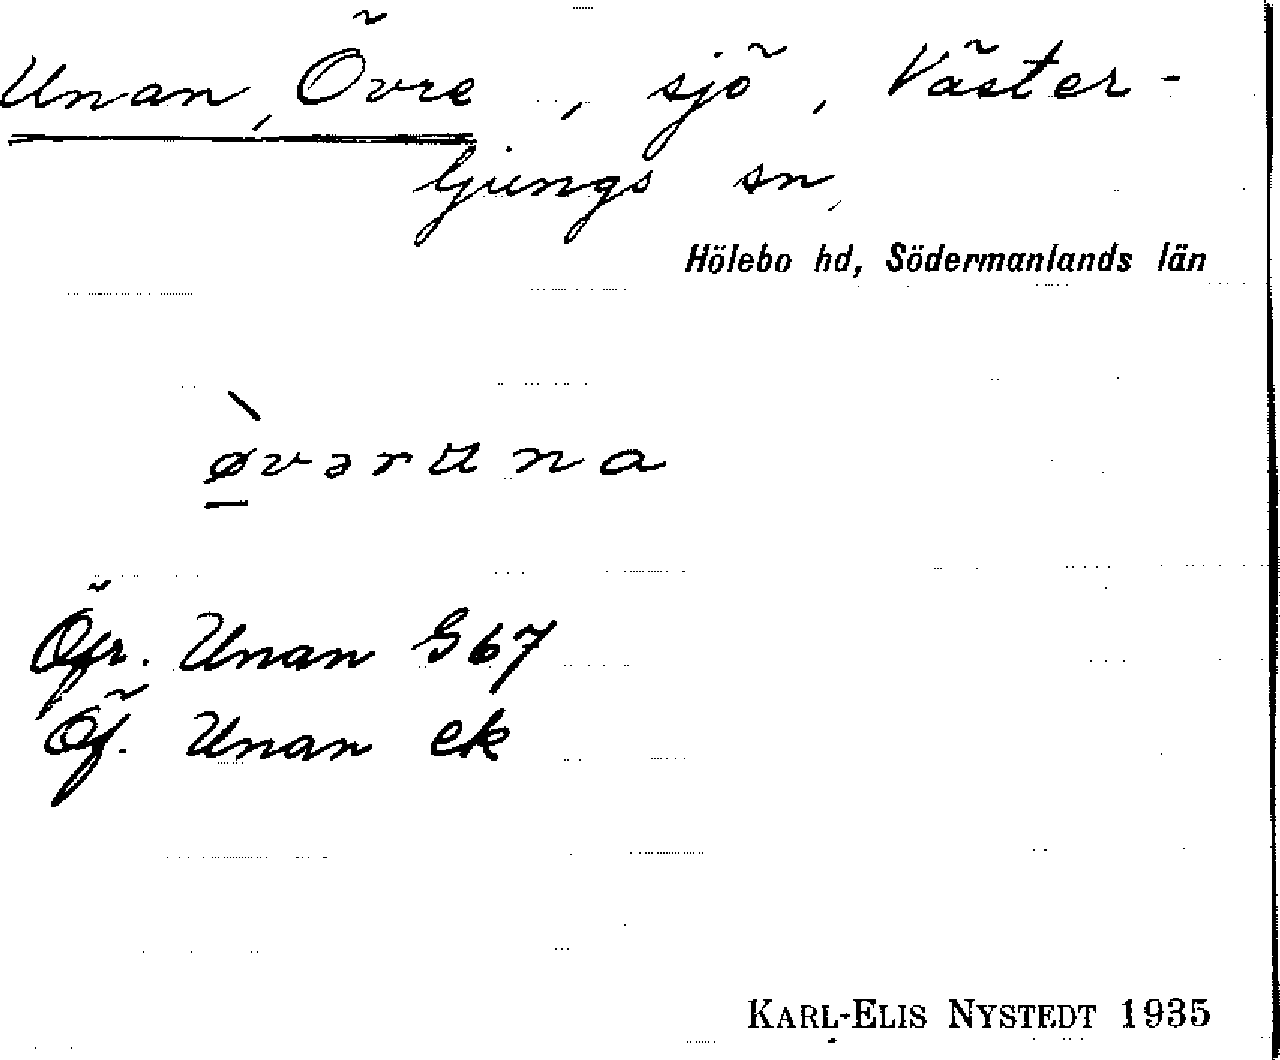 Unan, Övre, sjö, Väster-
ljungs sn,
Hölebo hd, Södermanlands län
ø̱̀vərʉna
Öfr. Unan G67
Öf. Unan ek
KARL-ELIS NYSTEDT 1935